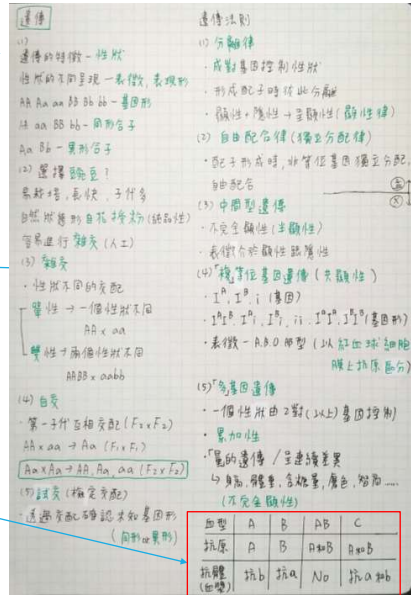 遺傳
(1)
遺傳的特徵-性狀
性狀的不同呈現-表徵,表現形
AA Aa aa BB Bb bb-基因形
AA aa BB bb-同形合子
Aa Bb-異形合子
(2) 選擇豌豆?
易栽培,長快,子代多
自然狀態形自花授粉(純品性)
容易進行雜交(人工)
(3) 雜交
·性狀不同的交配
單性→一個性狀不同
AA x aa
雙性→兩個性狀不同
AABB x aabb
(4) 自交
·第一子代互相交配(F₂xF₂)
AA x aa → Aa (F₁xF₁)
Aa x Aa → AA, Aa, aa (F₂xF₂)
(5) 試交(檢定交配)
·透過交配確認未知基因形
(同形or異形)
遺傳法則
(1) 分離律
·成對基因控制性狀
·形成配子時彼此分離
·顯性+隱性→呈顯性(顯性律)
(2) 自由配合律(獨立分配律)
·配子形成時,非等位基因獨立分配,
自由配合
(3) 中間型遺傳
·不完全顯性(半顯性)
·表徵介於顯性跟隱性
(4)「複等位基因遺傳(共顯性)
·Iᴬ, Iᴮ, i (基因)
·IᴬIᴮ, Iᴬi, Iᴮi, ii, IᴬIᴬ, IᴮIᴮ(基因形)
·表徵-A.B.O血型(以紅血球細胞
膜上抗原區分)
(5)「多基因遺傳
·一個性狀由2對(以上)基因控制
·累加性
·「量的遺傳/呈連續差異
↳身高,體重,含糖量,膚色,智商……
(不完全顯性)
血型 A B AB C
抗原 A B A和B A和B
抗體(血漿) 抗b 抗a No 抗a和b